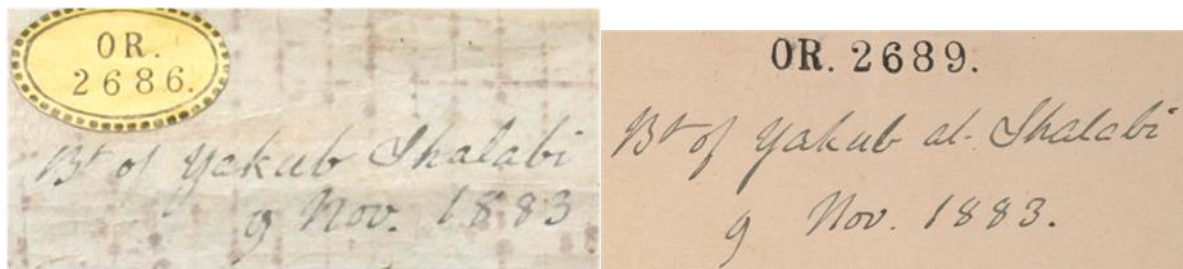 OR.
2686.
Bt of Yakub Shalabi
9 Nov. 1883
OR. 2689.
Bt of Yakub al- Shalabi
9 Nov. 1883.